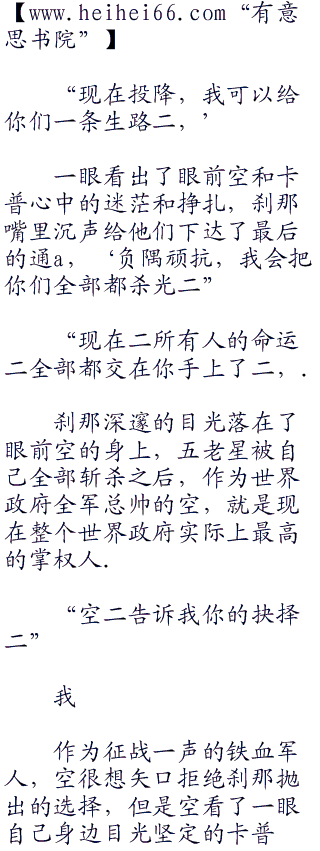 【www.heihei66.com“有意
思书院”】
“现在投降，我可以给
你们一条生路二，’
一眼看出了眼前空和卡
普心中的迷茫和挣扎，刹那
嘴里沉声给他们下达了最后
的通a，‘负隅顽抗，我会把
你们全部都杀光二”
“现在二所有人的命运
二全部都交在你手上了二，.
刹那深邃的目光落在了
眼前空的身上，五老星被自
己全部斩杀之后，作为世界
政府全军总帅的空，就是现
在整个世界政府实际上最高
的掌权人.
“空二告诉我你的抉择
二”
我
作为征战一声的铁血军
人，空很想矢口拒绝刹那抛
出的选择，但是空看了一眼
自己身边目光坚定的卡普